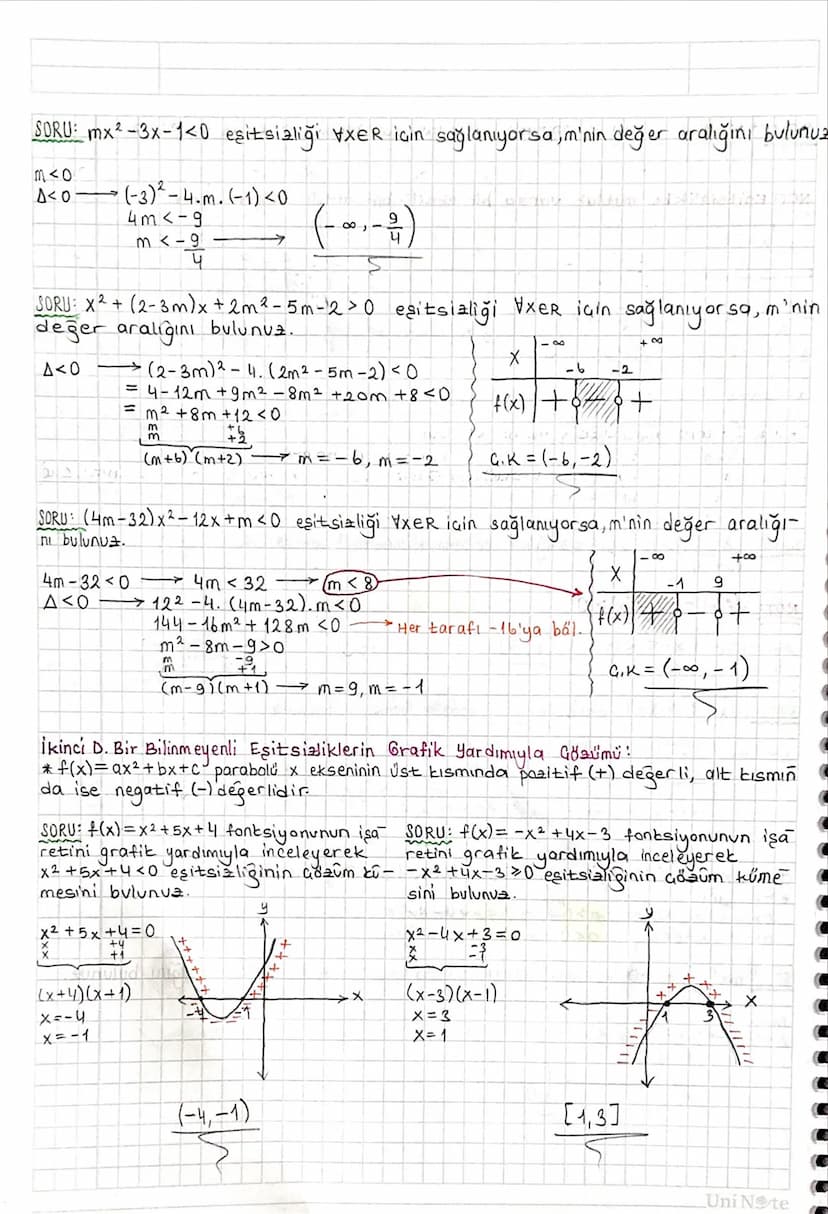 SORU: mx²-3x-1<0 eşitsizliği ∀x∈R için sağlanıyorsa, m'nin değer aralığını bulunuz
m<0
Δ<0 → (-3)²-4.m.(-1)<0
4m<-9
m<-9/4 → (-∞, -9/4)
SORU: x²+(2-3m)x+2m²-5m-2>0 eşitsizliği ∀x∈R için sağlanıyorsa, m'nin
değer aralığını bulunuz.
Δ<0 → (2-3m)²-4.(2m²-5m-2)<0
= 4-12m+9m²-8m²+20m+8<0
= m²+8m+12<0
m +6
m +2
(m+6)(m+2) → m=-6, m=-2
x -∞ -6 -2 +∞
f(x) + - +
Ç.K=(-6,-2)
SORU: (4m-32)x²-12x+m<0 eşitsizliği ∀x∈R için sağlanıyorsa, m'nin değer aralığı-
nı bulunuz.
4m-32<0 → 4m<32 → m<8
Δ<0 → 12²-4.(4m-32).m<0
144-16m²+128m<0 → Her tarafı -16'ya böl.
m²-8m-9>0
m -9
m +1
(m-9)(m+1) → m=9, m=-1
x -∞ -1 9 +∞
f(x) + - +
Ç.K=(-∞,-1)
İkinci D. Bir Bilinmeyenli Eşitsizliklerin Grafik Yardımıyla Çözümü:
* f(x)=ax²+bx+c parabolü x ekseninin üst kısmında pozitif (+) değerli, alt kısmın
da ise negatif (-) değerlidir.
SORU: f(x)=x²+5x+4 fonksiyonunun işa
retini grafik yardımıyla inceleyerek
x²+5x+4<0 eşitsizliğinin çözüm kü-
mesini bulunuz.
x²+5x+4=0
x +4
x +1
(x+4)(x+1)
x=-4
x=-1
y
x
-4 -1
(-4,-1)
SORU: f(x)=-x²+4x-3 fonksiyonunun işa
retini grafik yardımıyla inceleyerek
-x²+4x-3≥0 eşitsizliğinin çözüm küme
sini bulunuz.
x²-4x+3=0
x -3
x -1
(x-3)(x-1)
x=3
x=1
y
x
1 3
[1,3]
UniNote